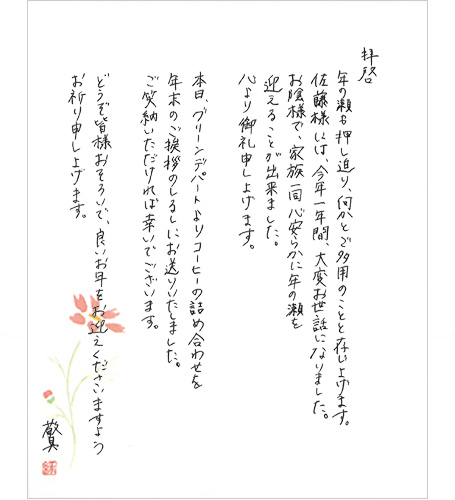 拝啓
年の瀬も押し迫り、何かとご多用のことと存じ上げます。
佐藤様には、今年一年間、大変お世話になりました。
お陰様で、家族一同心安らかに年の瀬を
迎えることが出来ました。
心より御礼申し上げます。
本日、グリーンデパートよりコーヒーの詰め合わせを
年末のご挨拶のしるしにお送りいたしました。
ご笑納いただければ幸いでございます。
どうぞ皆様おそろいで、良いお年をお迎えくださいますよう
お祈り申し上げます。
敬具